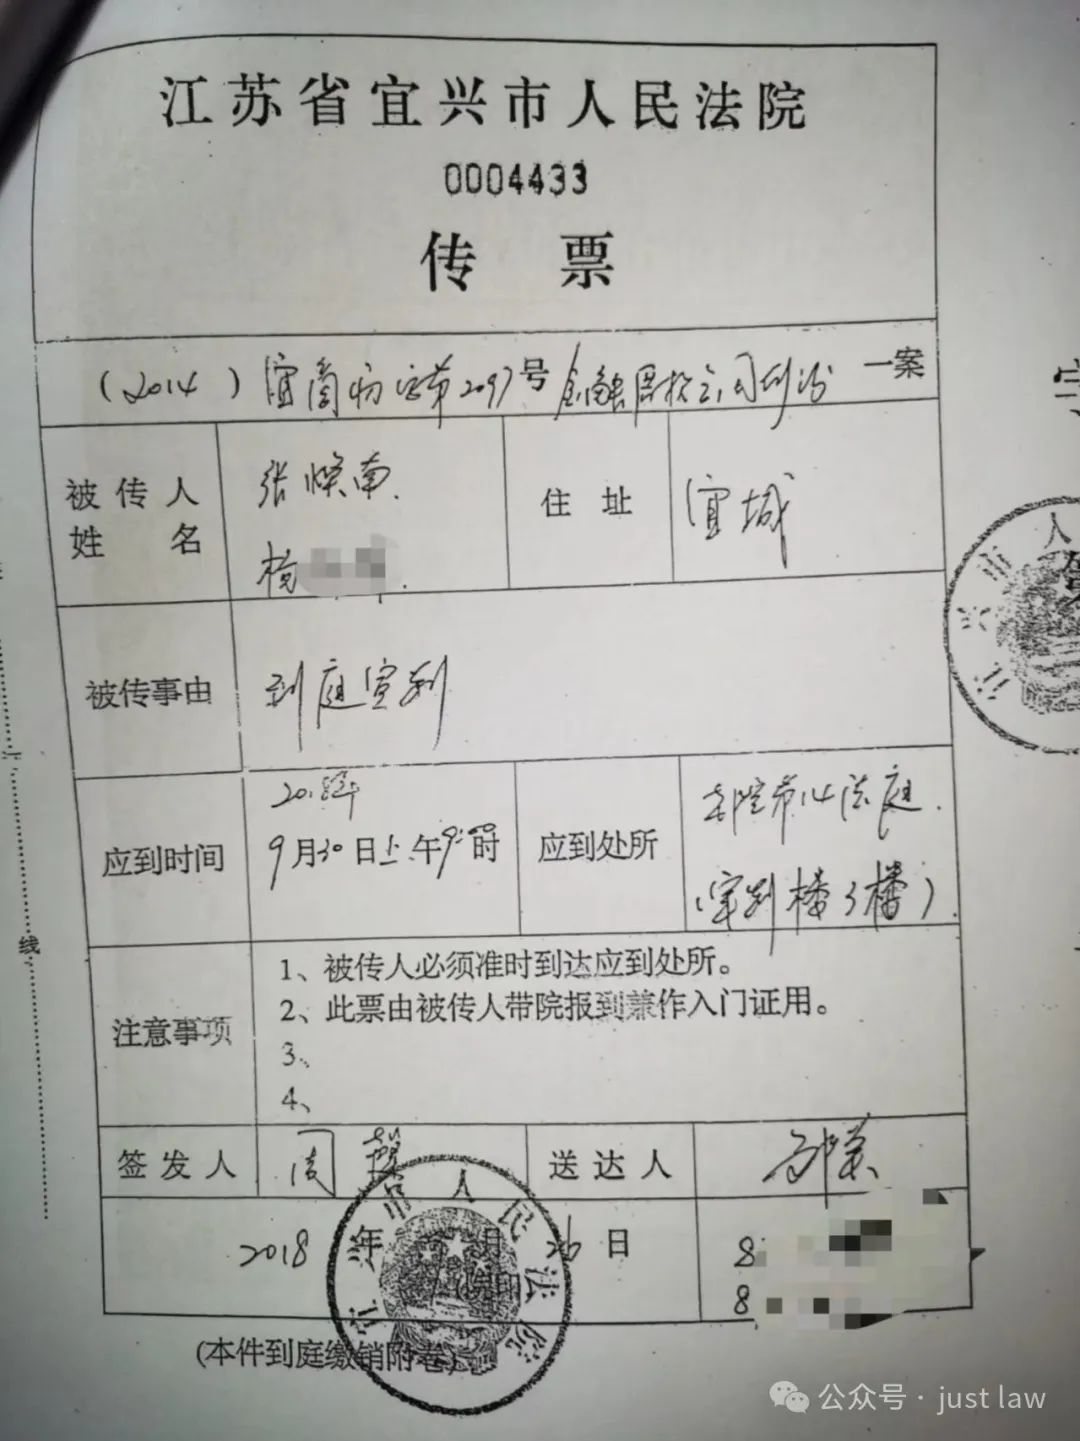 江苏省宜兴市人民法院
0004433
传 票
(2014)宜商初字第2097号 金融借款合同纠纷 一案
被传人姓名 张焕南 杨 住址 宜城
被传事由 到庭宣判
应到时间 2018年9月30日上午9:00时 应到处所 本院第14法庭(审判楼3楼)
注意事项
1、被传人必须准时到达应到处所。
2、此票由被传人带院报到兼作入门证用。
3、
4、
签发人 周 送达人
2018年 月26日
(院印)
8
8
(本件到庭缴销附卷)
宜兴市人民法院
线
公众号 · just law